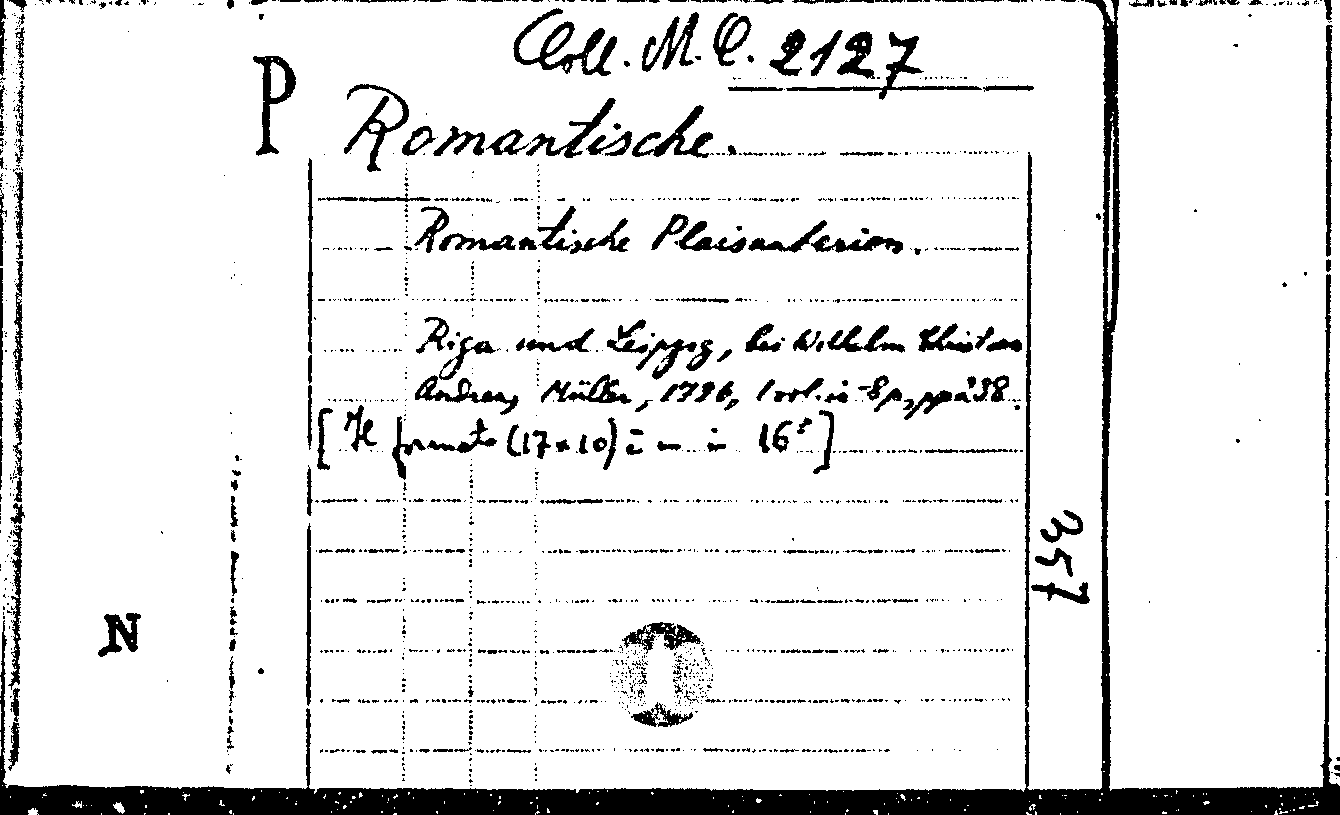 Coll. M. C. 2127
P
Romantische.
Romantische Plaisanterien.
Riga und Leipzig, bei Wilhelm Christian
Andreas Müller, 1796, 1 vol. in-8
[Il formato (17x10) è in 16°]
357
N